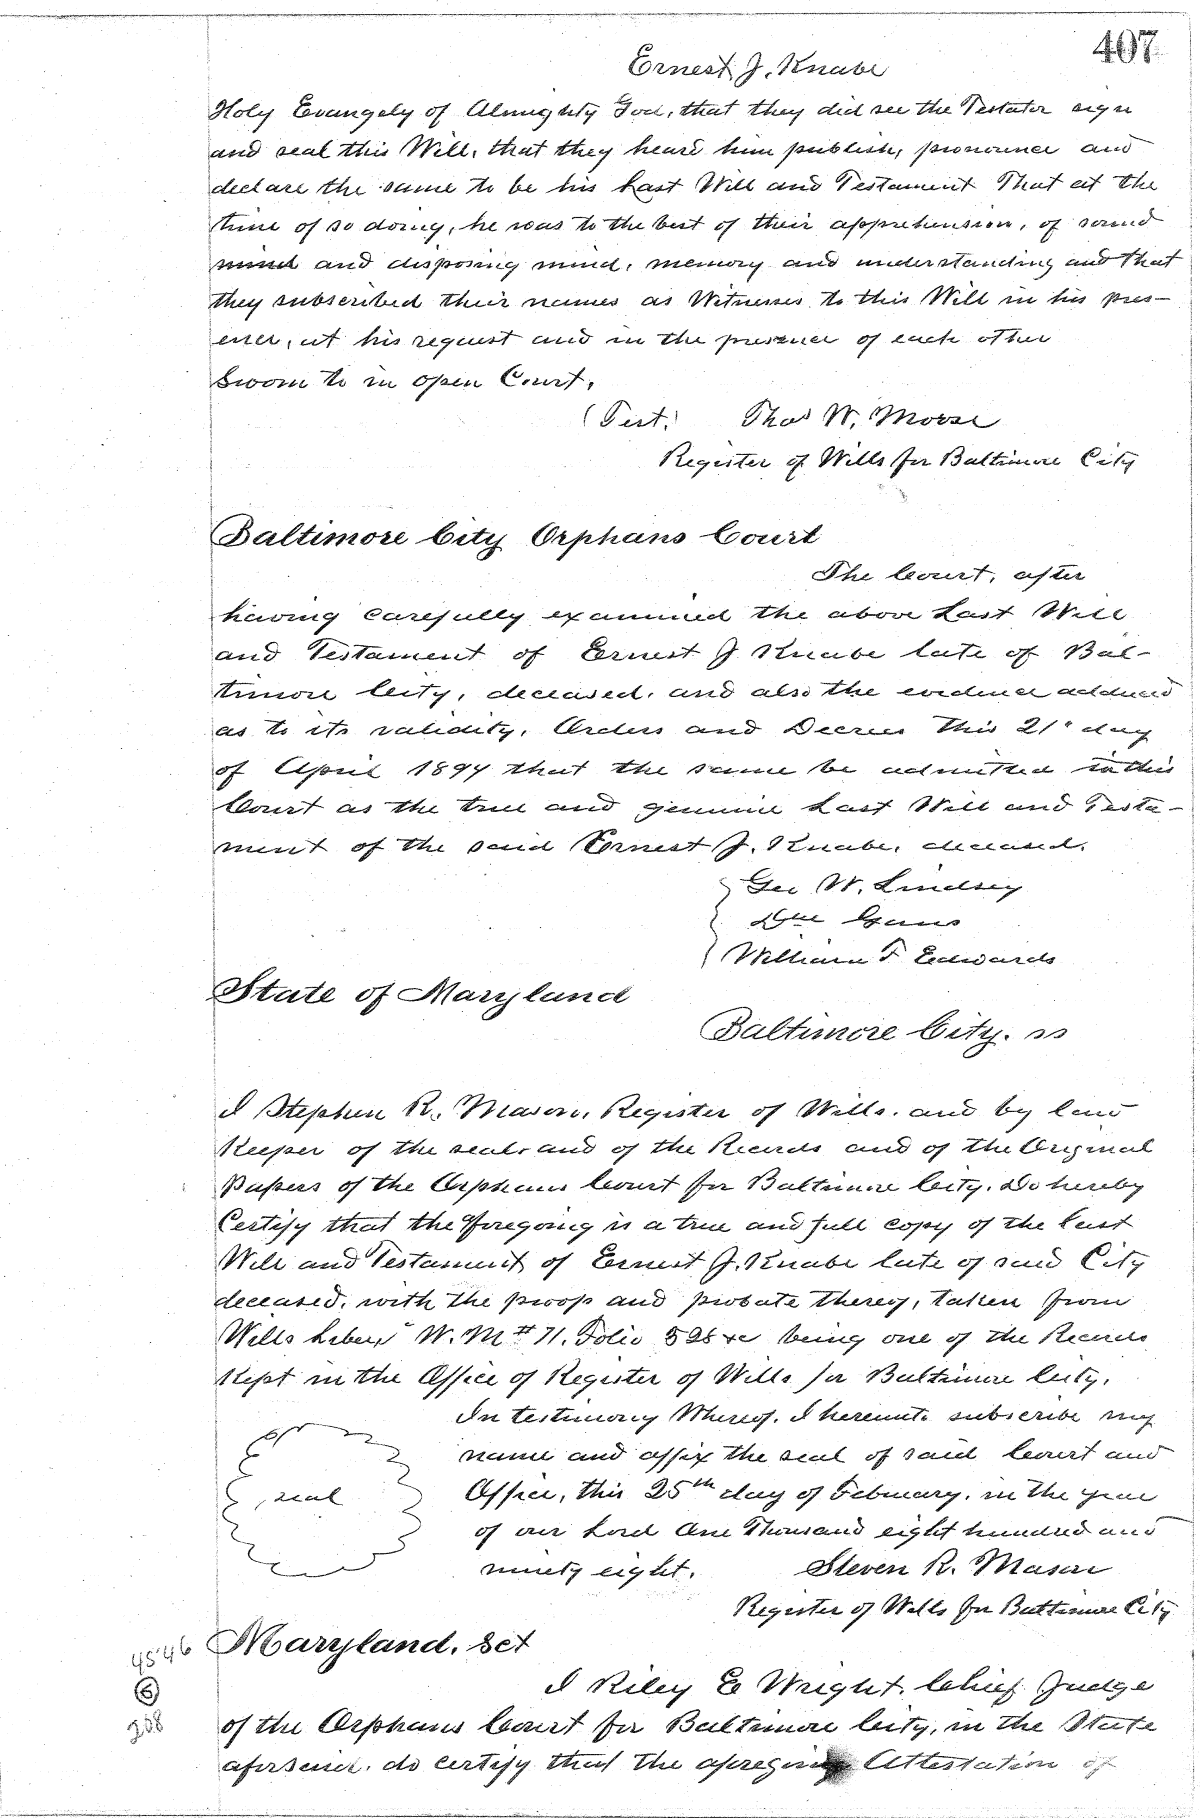 407
Ernest J. Knabe
Holy Evangely of Almighty God, that they did see the Testator sign
and seal this Will, that they heard him publish, pronounce and
declare the same to be his Last Will and Testament That at the
time of so doing, he was to the best of their apprehension, of sound
mind and disposing mind, memory and understanding and that
they subscribed their names as Witnesses to this Will in his pres-
ence, at his request and in the presence of each other
Sworn to in open Court,
(Test. Thos W. Morse
Register of Wills for Baltimore City
Baltimore City Orphans Court
The Court, after
having carefully examined the above Last Will
and Testament of Ernest J Knabe late of Bal-
timore City, deceased, and also the evidence adduced
as to its validity, Orders and Decrees this 21" day
of April 1894 that the same be admitted in this
Court as the true and genuine Last Will and Testa-
ment of the said Ernest J. Knabe, deceased.
Geo W. Lindsey
Gans
William F Edwards
State of Maryland
Baltimore City. ss
I Stephen R. Mason, Register of Wills, and by law
Keeper of the seal, and of the Records and of the Original
Papers of the Orphans Court for Baltimore City, Do hereby
Certify that the foregoing is a true and full copy of the last
Will and Testament of Ernest J. Knabe late of said City
deceased, with the proof and probate thereof, taken from
Wills Liber W. M # 71. Folio 528 &c being one of the Records
Kept in the Office of Register of Wills for Baltimore City.
In testimony Whereof, I hereunto subscribe my
name and affix the seal of said Court and
seal
Office, this 25th day of February, in the year
of our Lord One Thousand eight hundred and
ninety eight.
Steven R. Mason
Register of Wills for Baltimore City
4546
6
208
Maryland. Sct
I Riley E Wright, Chief Judge
of the Orphans Court for Baltimore City, in the State
aforesaid, do certify that the aforegoing Attestation of